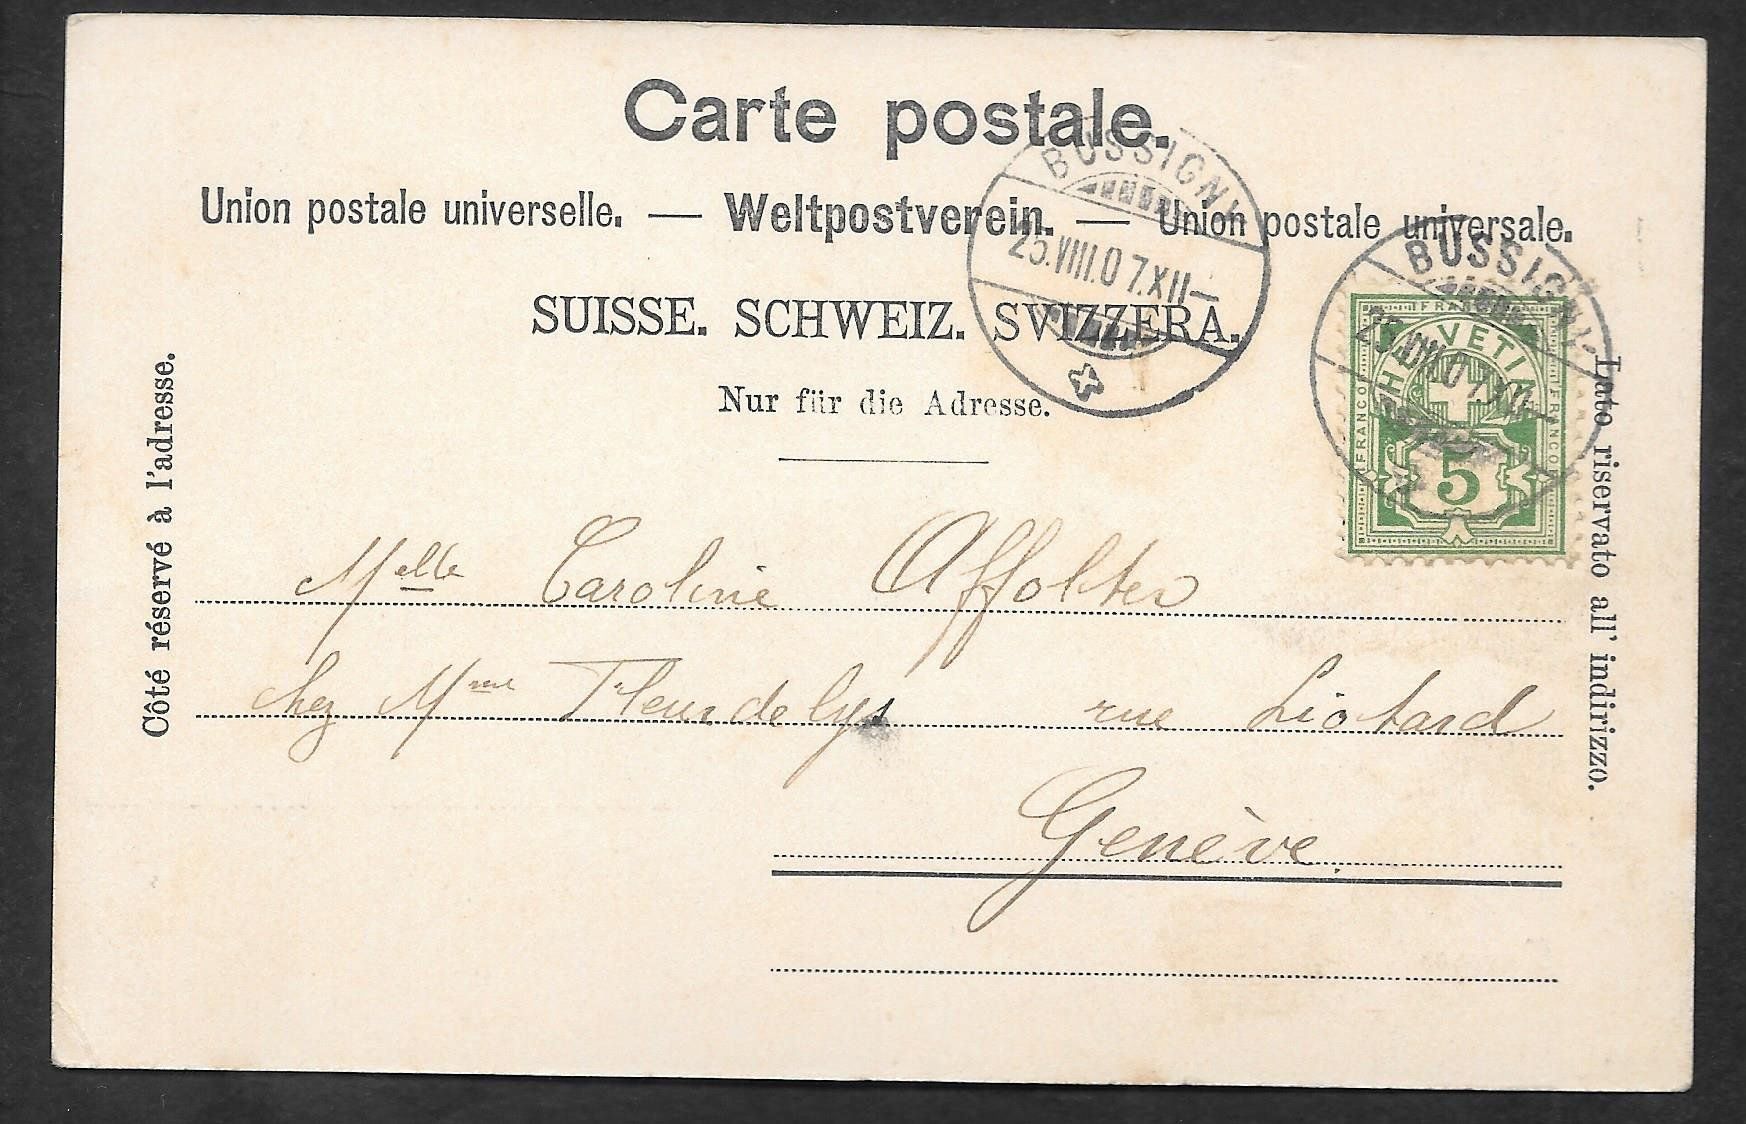 Carte postale.
Union postale universelle. — Weltpostverein. — Union postale universale.
SUISSE. SCHWEIZ. SVIZZERA.
Nur für die Adresse.
Côté réservé à l'adresse.
Lato riservato all' indirizzo.
BUSSIGNY
25.VIII.07.XII—
BUSSIGNY
25.VIII.07.XII—
FRANCO
HELVETIA
FRANCO
FRANCO
5
Melle Caroline Affolter
chez Mme Fleurdelys rue Liotard
Genève